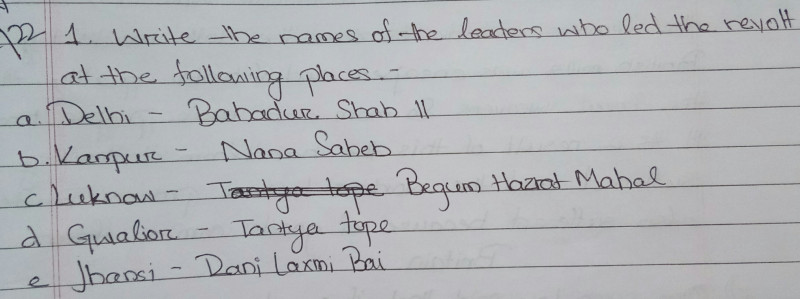 122 1. Write the names of the leaders who led the revolt
at the following places. -
a. Delhi - Bahadur Shah II
b. Kanpur - Nana Saheb
c Luknow - Tantya tope Begum Hazrat Mahal
d Gwalior - Tantya tope
e Jhansi - Rani Laxmi Bai